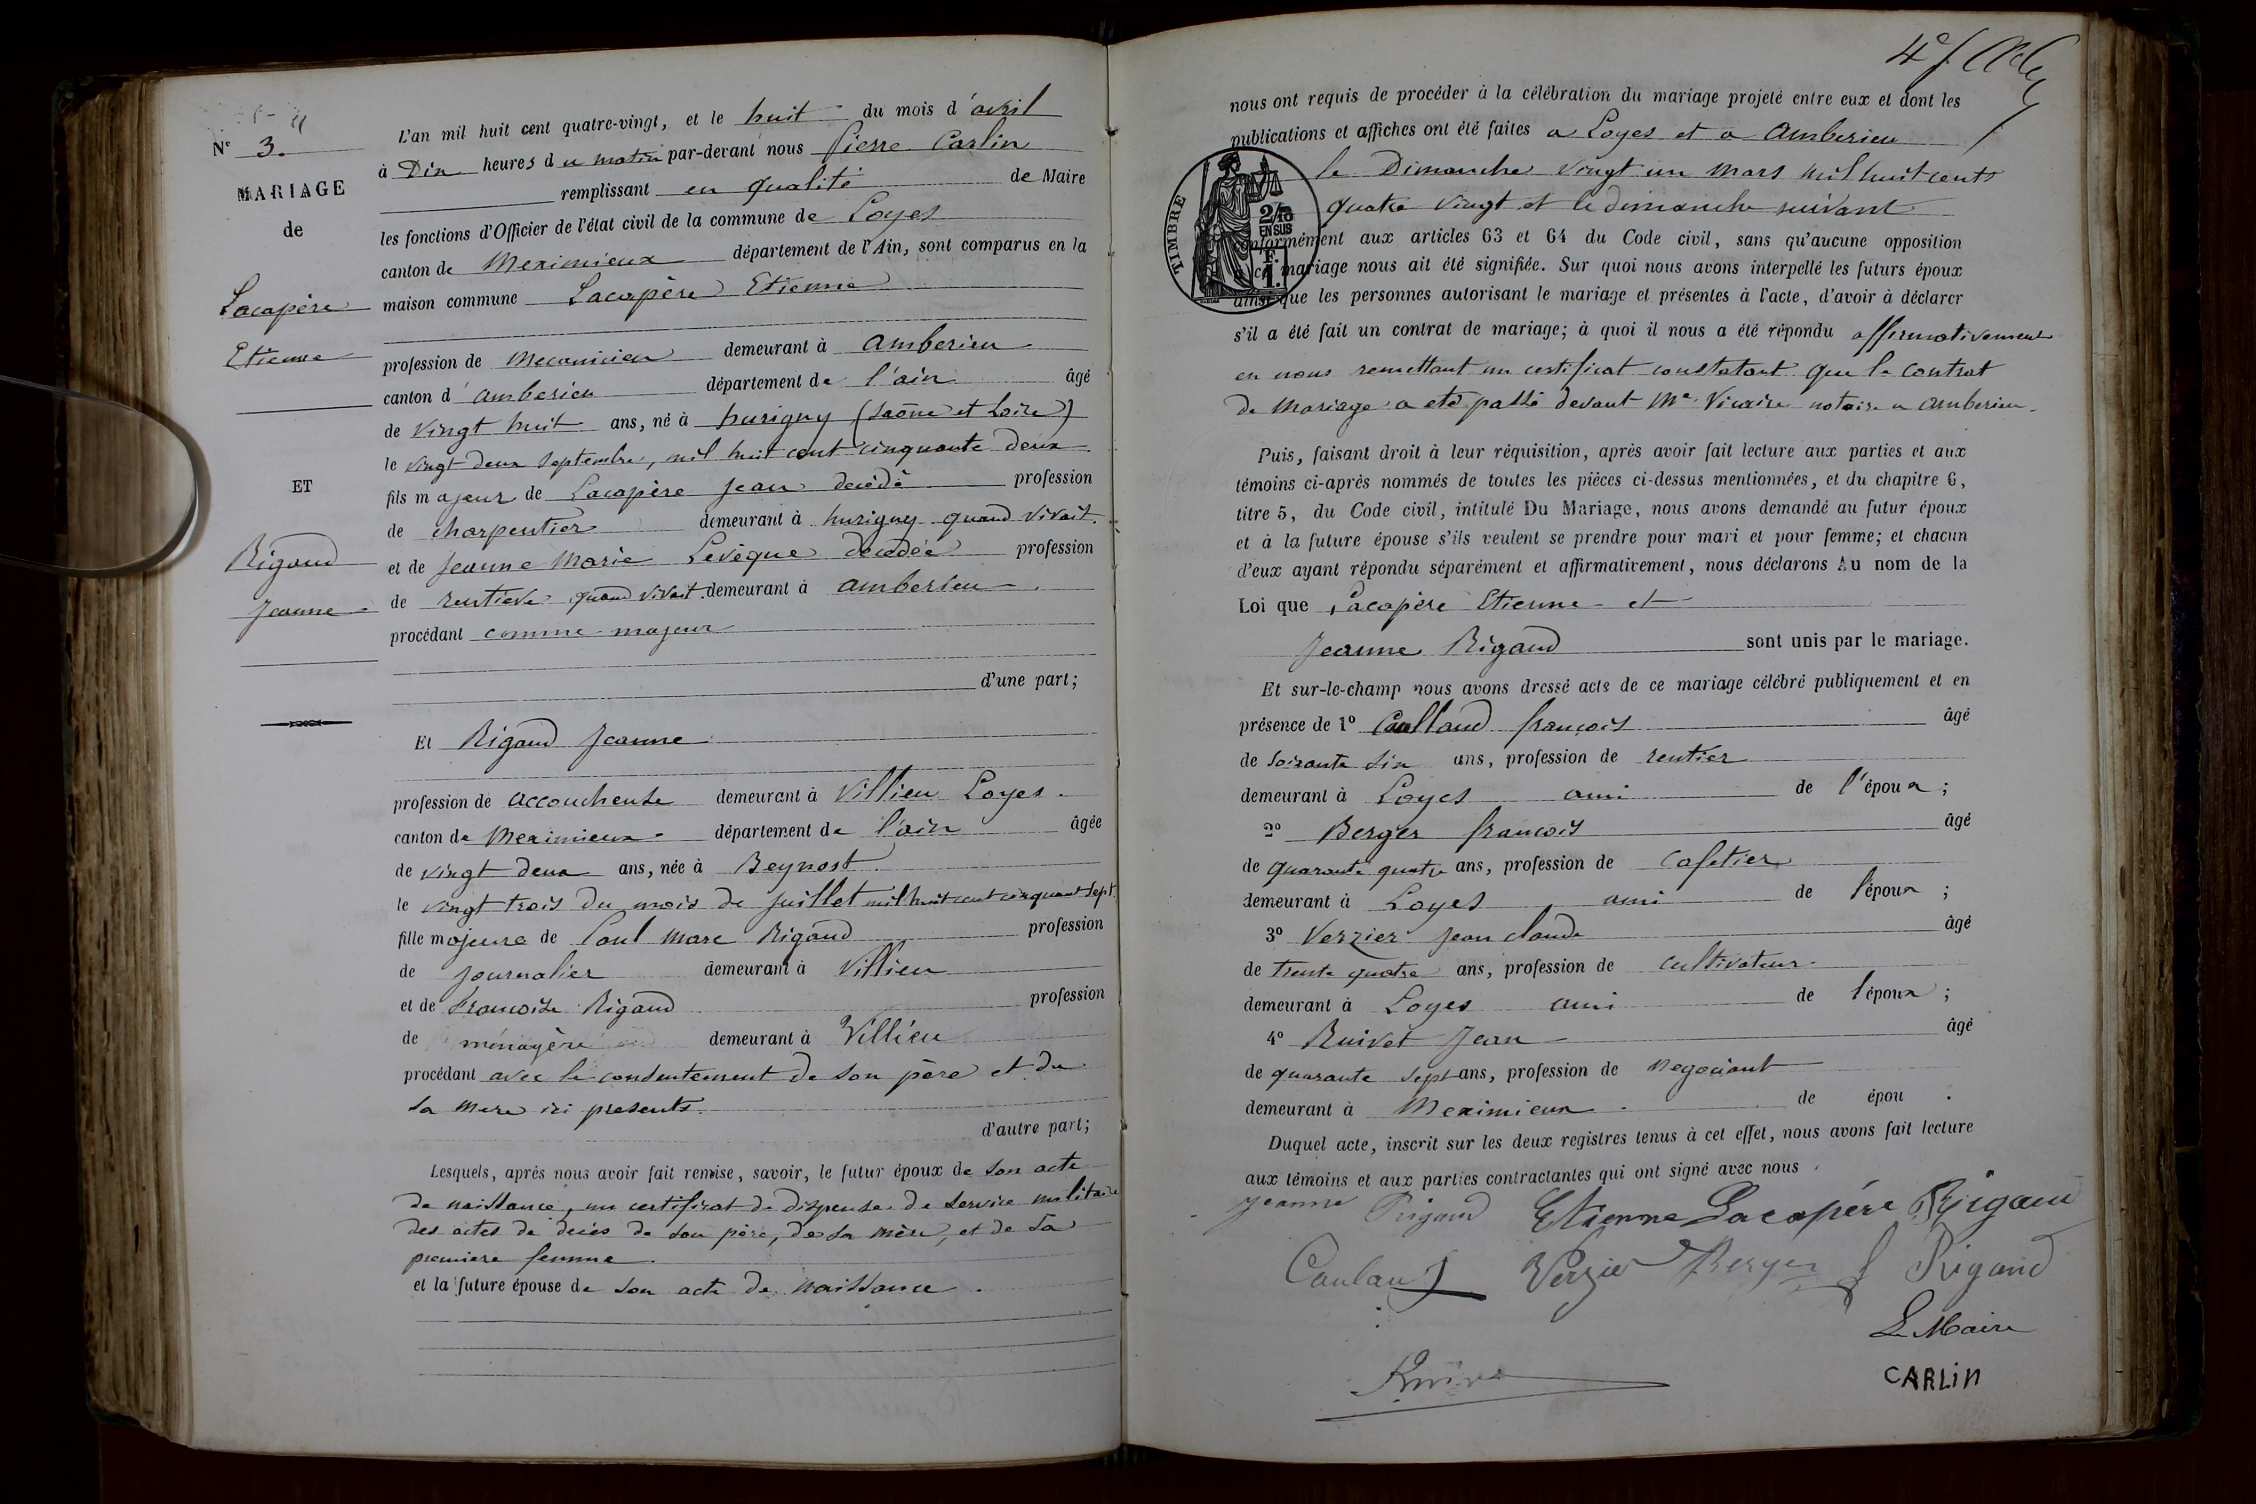 Nº 3.
MARIAGE
de
Lacapère
Etienne
ET
Rigaud
Jeanne
L'an mil huit cent quatre-vingt, et le huit du mois d'avril
à Dix heures du matin par-devant nous Pierre Carlin
remplissant en qualité de Maire
les fonctions d'Officier de l'état civil de la commune de Loyes
canton de Meximieux département de l'Ain, sont comparus en la
maison commune Lacapère Etienne
profession de Mecanicien demeurant à Amberieu
canton d'amberieu département de l'ain âgé
de vingt huit ans, né à hurigny (Saône et Loire)
le vingt deux septembre, mil huit cent cinquante deux
fils majeur de Lacapère Jean décédé profession
de charpentier demeurant à hurigny quand vivait.
et de Jeanne Marie Levèque décédée profession
de rentière quand vivait demeurant à amberieu
procédant comme majeur
d'une part;
Et Rigaud Jeanne
profession de accoucheuse demeurant à Villieu Loyes.
canton de Meximieux département de l'ain âgée
de vingt deux ans, née à Beynost
le vingt trois du mois de juillet mil huit cent cinquant sept
fille majeure de Paul Marc Rigaud profession
de journalier demeurant à Villieu
et de françoise Rigaud profession
de ménagère demeurant à Villieu
procédant avec le consentement de son père et de
sa mere ici presents.
d'autre part;
Lesquels, après nous avoir fait remise, savoir, le futur époux de son acte
de naissance, un certificat de dispense de service militaire
des actes de décés de son père, de sa mère, et de sa
premiere femme.
et la future épouse de son acte de naissance.
nous ont requis de procéder à la célébration du mariage projeté entre eux et dont les
publications et affiches ont été faites a Loyes et a Amberieu
le Dimanche vingt un mars mil huit cents
quatre vingt et le dimanche suivant
conformément aux articles 63 et 64 du Code civil, sans qu'aucune opposition
à ce mariage nous ait été signifiée. Sur quoi nous avons interpellé les futurs époux
ainsi que les personnes autorisant le mariage et présentes à l'acte, d'avoir à déclarer
s'il a été fait un contrat de mariage; à quoi il nous a été répondu affirmativement
en nous remettant un certificat constatant que le contrat
de mariage a eté passé devant Me Vicaire notaire a amberieu.
TIMBRE
2/10
EN SUS
F.
1.
Puis, faisant droit à leur réquisition, après avoir fait lecture aux parties et aux
témoins ci-après nommés de toutes les pièces ci-dessus mentionnées, et du chapitre 6,
titre 5, du Code civil, intitulé Du Mariage, nous avons demandé au futur époux
et à la future épouse s'ils veulent se prendre pour mari et pour femme; et chacun
d'eux ayant répondu séparément et affirmativement, nous déclarons Au nom de la
Loi que Lacapère Etienne et
Jeanne Rigaud sont unis par le mariage.
Et sur-le-champ nous avons dressé acte de ce mariage célébré publiquement et en
présence de 1º Caulland françois âgé
de soixante six ans, profession de rentier
demeurant à Loyes ami de l'époux;
2º Berger francois âgé
de quarante quatre ans, profession de cafetier
demeurant à Loyes ami de l'époux;
3º Verzier Jean claude âgé
de trente quatre ans, profession de cultivateur
demeurant à Loyes ami de l'époux;
4º Ruivet Jean âgé
de quarante sept ans, profession de negociant
demeurant à Meximieux. de épou .
Duquel acte, inscrit sur les deux registres tenus à cet effet, nous avons fait lecture
aux témoins et aux parties contractantes qui ont signé avec nous.
Jeanne Rigaud Etienne Lacapére Rigaud
Verzier Berger f Rigaud
Le Maire
CARLIN